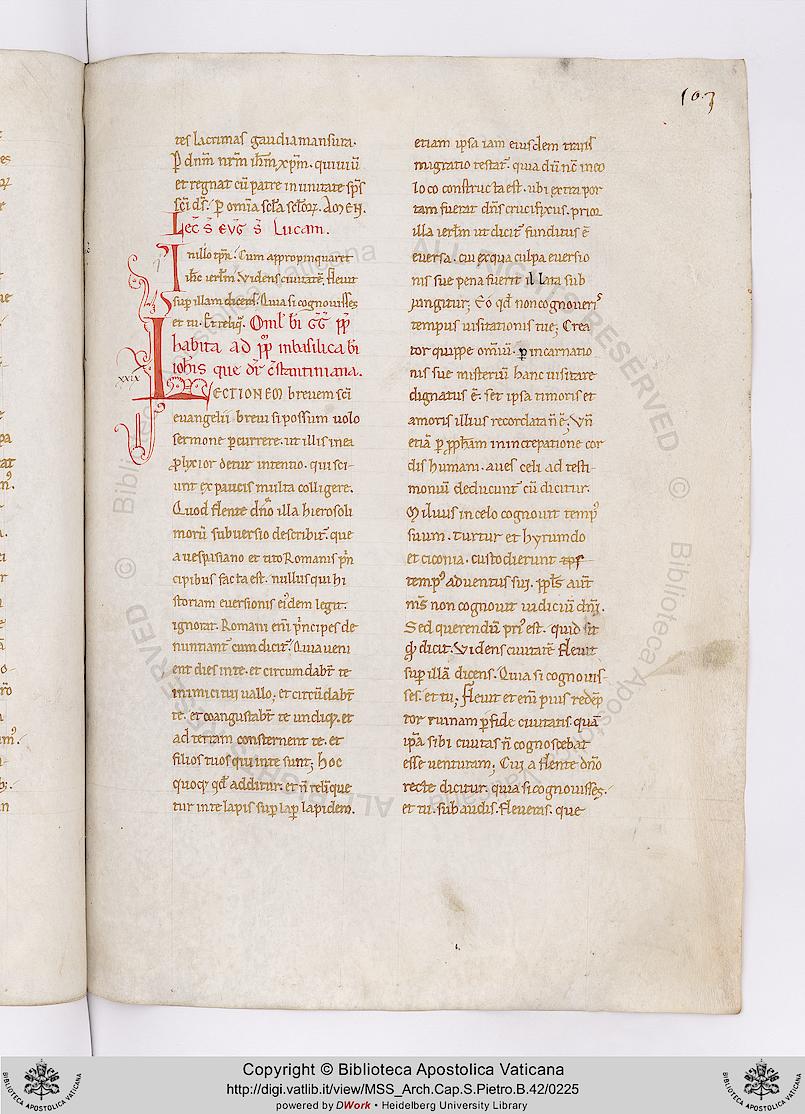 103
tes lacrimas gaudia mansura.
P dnm nrm ihm xpm. qui uiuit
et regnat cu patre in unitate sps
sci ds. P omia scla sclor. AmeN.
Lec s eug s Lucam.
In illo tpr. Cum appropinquaret
ihc ierlm. videns ciuitate. fleuit
sup illam dicens. Quia si cognouisses
et tu. Et reliq. Oml bi GG pp
habita ad pp in basilica bi
iohis que dr cstantiniana.
XXIX
LECTIONEM breuem sci
euangelii breui si possum uolo
sermone pcurrere. ut illis in ea
plixior detur intentio. qui sci-
unt ex paucis multa colligere.
Quod flente dno illa hierosoli
moru subuersio describit. que
a uespasiano et tito Romanis prin
cipibus facta est. nullus qui hi
storiam euersionis eidem legit.
ignorat. Romani eni principes de
nuntiant cum dicit. Quia ueni
ent dies in te. et circumdabt te
inimici tui uallo; et circudabt
te. et coangustabt te undiq. et
ad terram consternent te. et
filios tuos qui in te sunt; hoc
quoq qd additur. et n relinque
tur in te lapis sup lap lapidem.
etiam ipsa iam eiusdem trans
migratio testat. quia du nc in eo
loco constructa est. ubi extra por
tam fuerat dns crucifixus. prior
illa ierlm ut dicit funditus e
euersa. cui ex qua culpa euersio
nis sue pena fuerit illata sub
iungitur; Eo qd non cognoueris
tempus uisitationis tue; Crea
tor quippe omiu. p incarnatio
nis sue misteriu hanc uisitare
dignatus e. set ipsa timoris et
amoris illius recordata n e; Vn
etia p ppham in increpatione cor
dis humani. aues celi ad testi-
moniu deducunt cu dicitur.
Miluus in celo cognouit temp
suum. turtur et hyrundo
et ciconia. custodierunt
temp aduentus sui. ppls aut
ms non cognouit iudiciu dni.
Sed querendu pri est. quid sit
qd dicit. Videns ciuitate fleuit
sup illa dicens. Quia si cognouis-
ses. et tu; Fleuit et eni pius redep
tor ruinam pfide ciuitatis. qua
ipa sibi ciuitas n cognoscebat
esse uenturam; Cui a flente dno
recte dicitur. quia si cognouisses.
et tu. subaudis. fleueris. que
Copyright © Biblioteca Apostolica Vaticana
http://digi.vatlib.it/view/MSS_Arch.Cap.S.Pietro.B.42/0225
powered by DWork • Heidelberg University Library